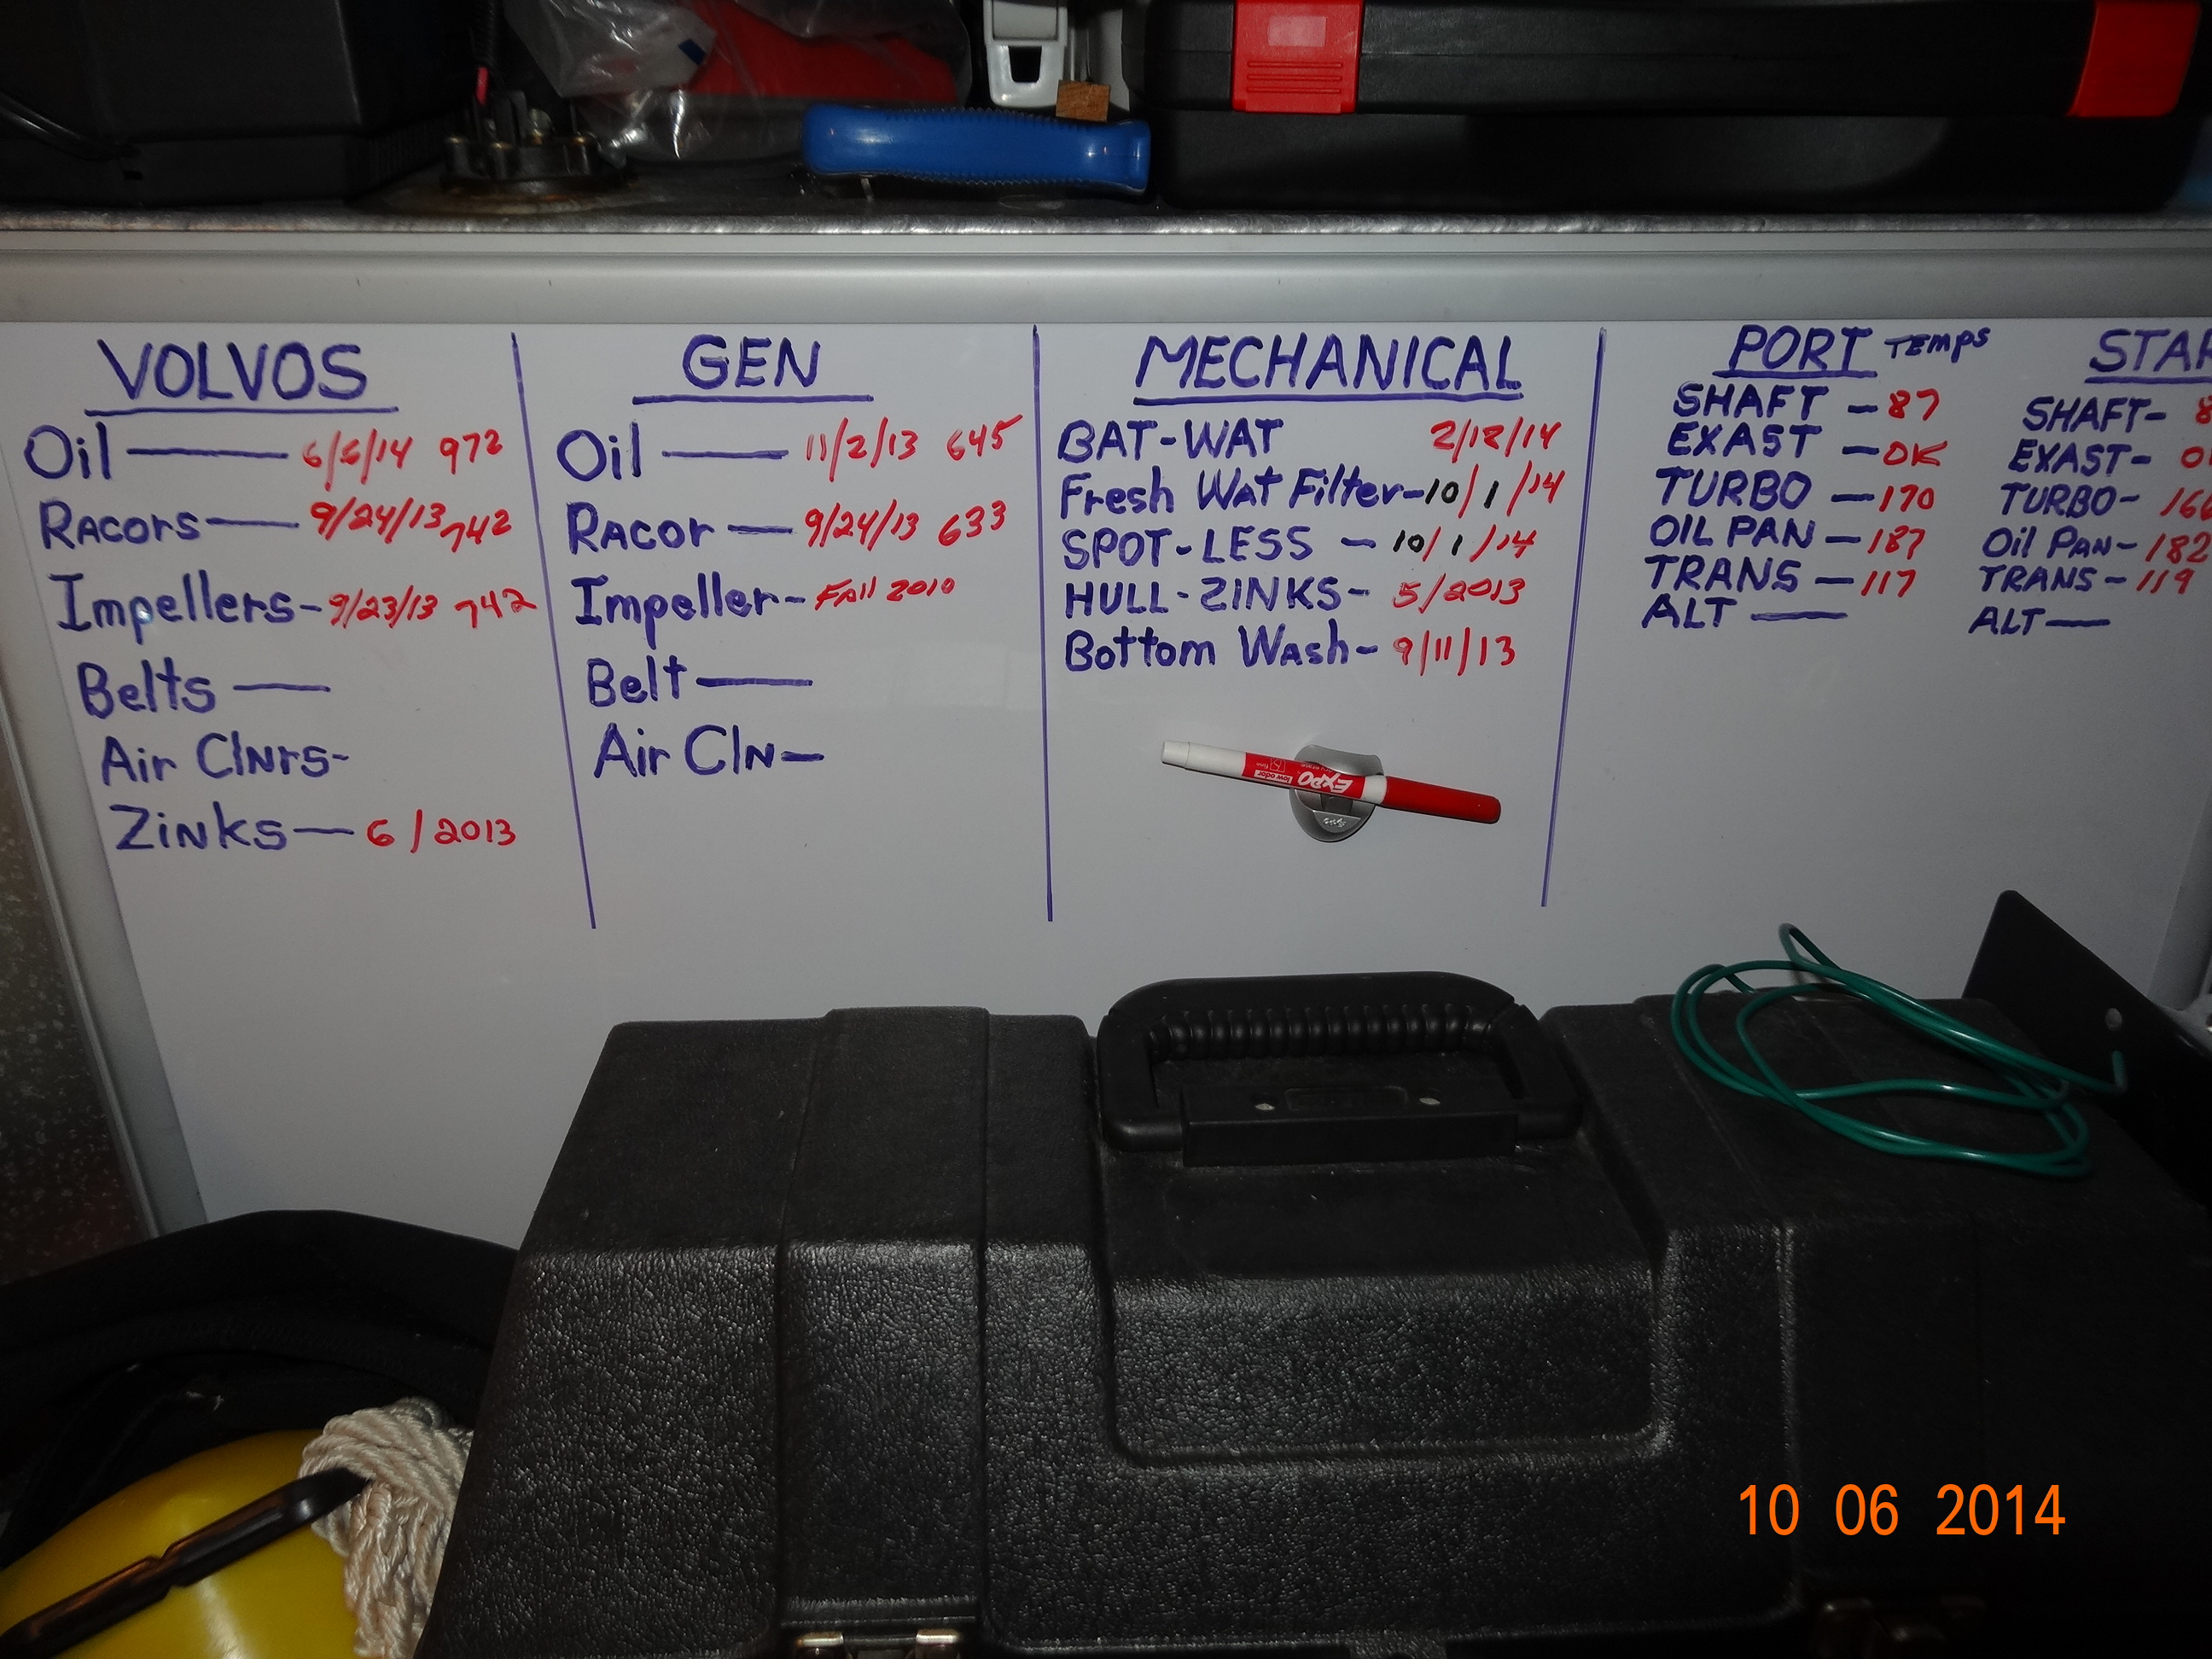 VOLVOS
Oil — 6/6/14 972
RACORS — 9/24/13 742
Impellers - 9/23/13 742
Belts —
Air Clnrs-
Zinks — 6/2013
GEN
Oil — 11/2/13 645
RACOR — 9/24/13 633
Impeller - FAll 2010
Belt —
Air Cln —
MECHANICAL
BAT-WAT 2/12/14
Fresh Wat Filter - 10/1/14
SPOT-LESS - 10/1/14
HULL-ZINKS - 5/2013
Bottom Wash - 9/11/13
EXPO
low odor
PORT TEMPS
SHAFT - 87
EXAST - OK
TURBO - 170
OIL PAN - 187
TRANS - 117
ALT —
STAR
SHAFT- 8
EXAST- O
TURBO- 166
Oil PAN- 182
TRANS - 119
ALT —
10 06 2014